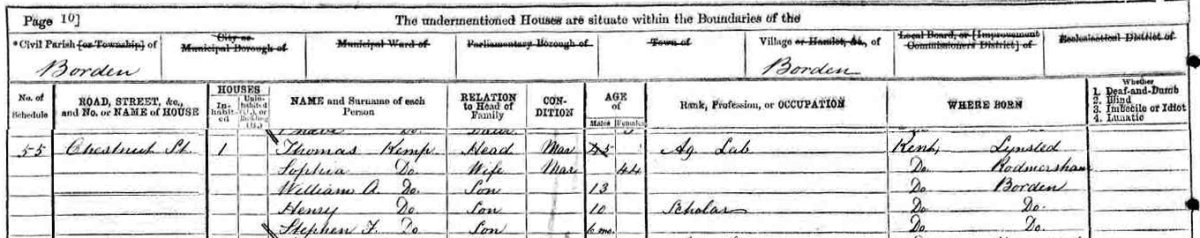 Page 10]
The undermentioned Houses are situate within the Boundaries of the
*Civil Parish [or Township] of
City or Municipal Borough of
Municipal Ward of
Parliamentary Borough of
Town of
Village or Hamlet, &c., of
Local Board, or [Improvement Commissioners District] of
Ecclesiastical District of
Borden
Borden
No. of Schedule
ROAD, STREET, &c., and No. or NAME of HOUSE
HOUSES
In-habit-ed
NAME and Surname of each Person
RELATION to Head of Family
CON-DITION
AGE of
Males
Females
Rank, Profession, or OCCUPATION
WHERE BORN
Whether
1. Deaf-and-Dumb
2. Blind
3. Imbecile or Idiot
4. Lunatic
55 Chestnut St 1 Thomas Kemp Head Mar 45 Ag Lab Kent, Lynsted
Sophia Do. Wife Mar 44 Do. Rodmersham
William A. Do. Son 13 Do. Borden
Henry Do. Son 10 Scholar Do. Do.
Stephen F. Do Son 6 mo. Do. Do.